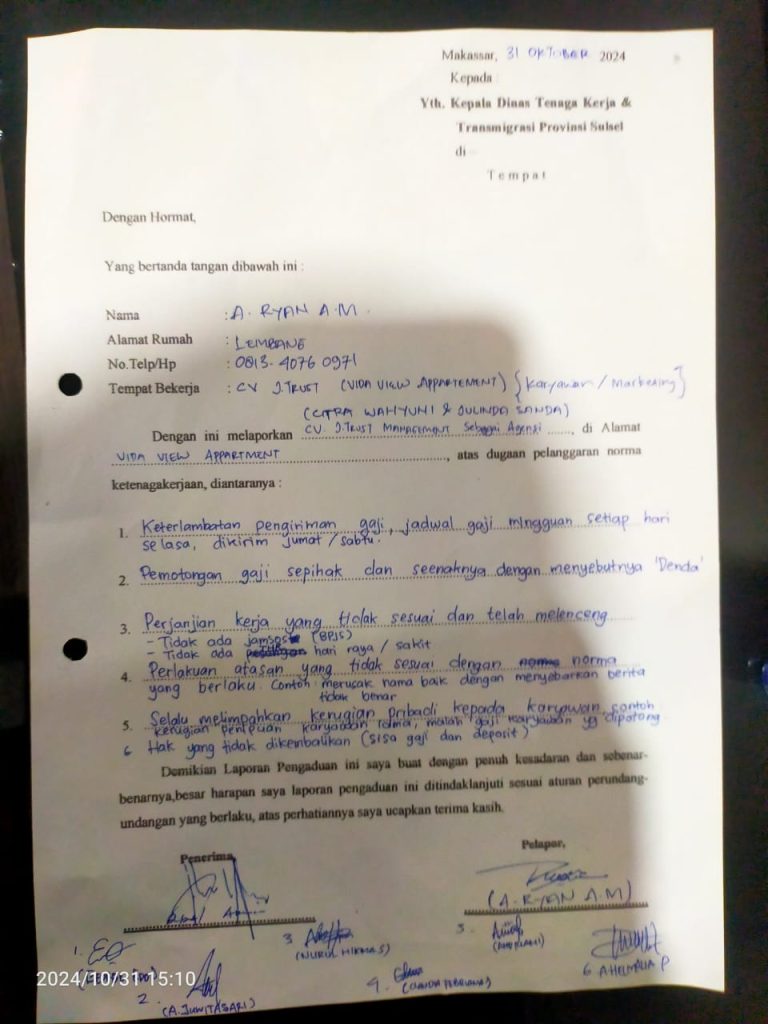 Makassar, 31 OKTOBER 2024
Kepada
Yth. Kepala Dinas Tenaga Kerja &
Transmigrasi Provinsi Sulsel
di
Tempat
Dengan Hormat,
Yang bertanda tangan dibawah ini :
Nama : A. RYAN A.M.
Alamat Rumah : LEMBANG
No.Telp/Hp : 0813-4076 0971
Tempat Bekerja : CV J.TRUST (VIDA VIEW APPARTEMENT) {Karyawan / Marketing}
(CITRA WAHYUNI & JULINDA SANDA)
Dengan ini melaporkan CV. J.TRUST MANAGEMENT Sebagai Agensi ......, di Alamat
VIDA VIEW APPARTMENT ......, atas dugaan pelanggaran norma
ketenagakerjaan, diantaranya :
1. Keterlambatan pengiriman gaji, jadwal gaji mingguan setiap hari
selasa, dikirim jumat / sabtu.
2. Pemotongan gaji sepihak dan seenaknya dengan menyebutnya 'Denda'
3. Perjanjian kerja yang tidak sesuai dan telah melenceng
- Tidak ada jamsos (BPJS)
- Tidak ada hari raya / sakit
4. Perlakuan atasan yang tidak sesuai dengan norma
yang berlaku. Contoh: merusak nama baik dengan menyebarkan berita
tidak benar
5. Selalu melimpahkan kerugian pribadi kepada karyawan, contoh
kerugian penipuan karyawan lama, malah gaji karyawan yg dipotong
6 Hak yang tidak dikembalikan (sisa gaji dan deposit)
Demikian Laporan Pengaduan ini saya buat dengan penuh kesadaran dan sebenar-
benarnya,besar harapan saya laporan pengaduan ini ditindaklanjuti sesuai aturan perundang-
undangan yang berlaku, atas perhatiannya saya ucapkan terima kasih.
Penerima
Pelapor,
(A. RYAN A.M)
1.
3 (NURUL HIKMAS)
5.
2. (A. JUWITASARI)
4.
6 A.HELMALIA P
2024/10/31 15:10